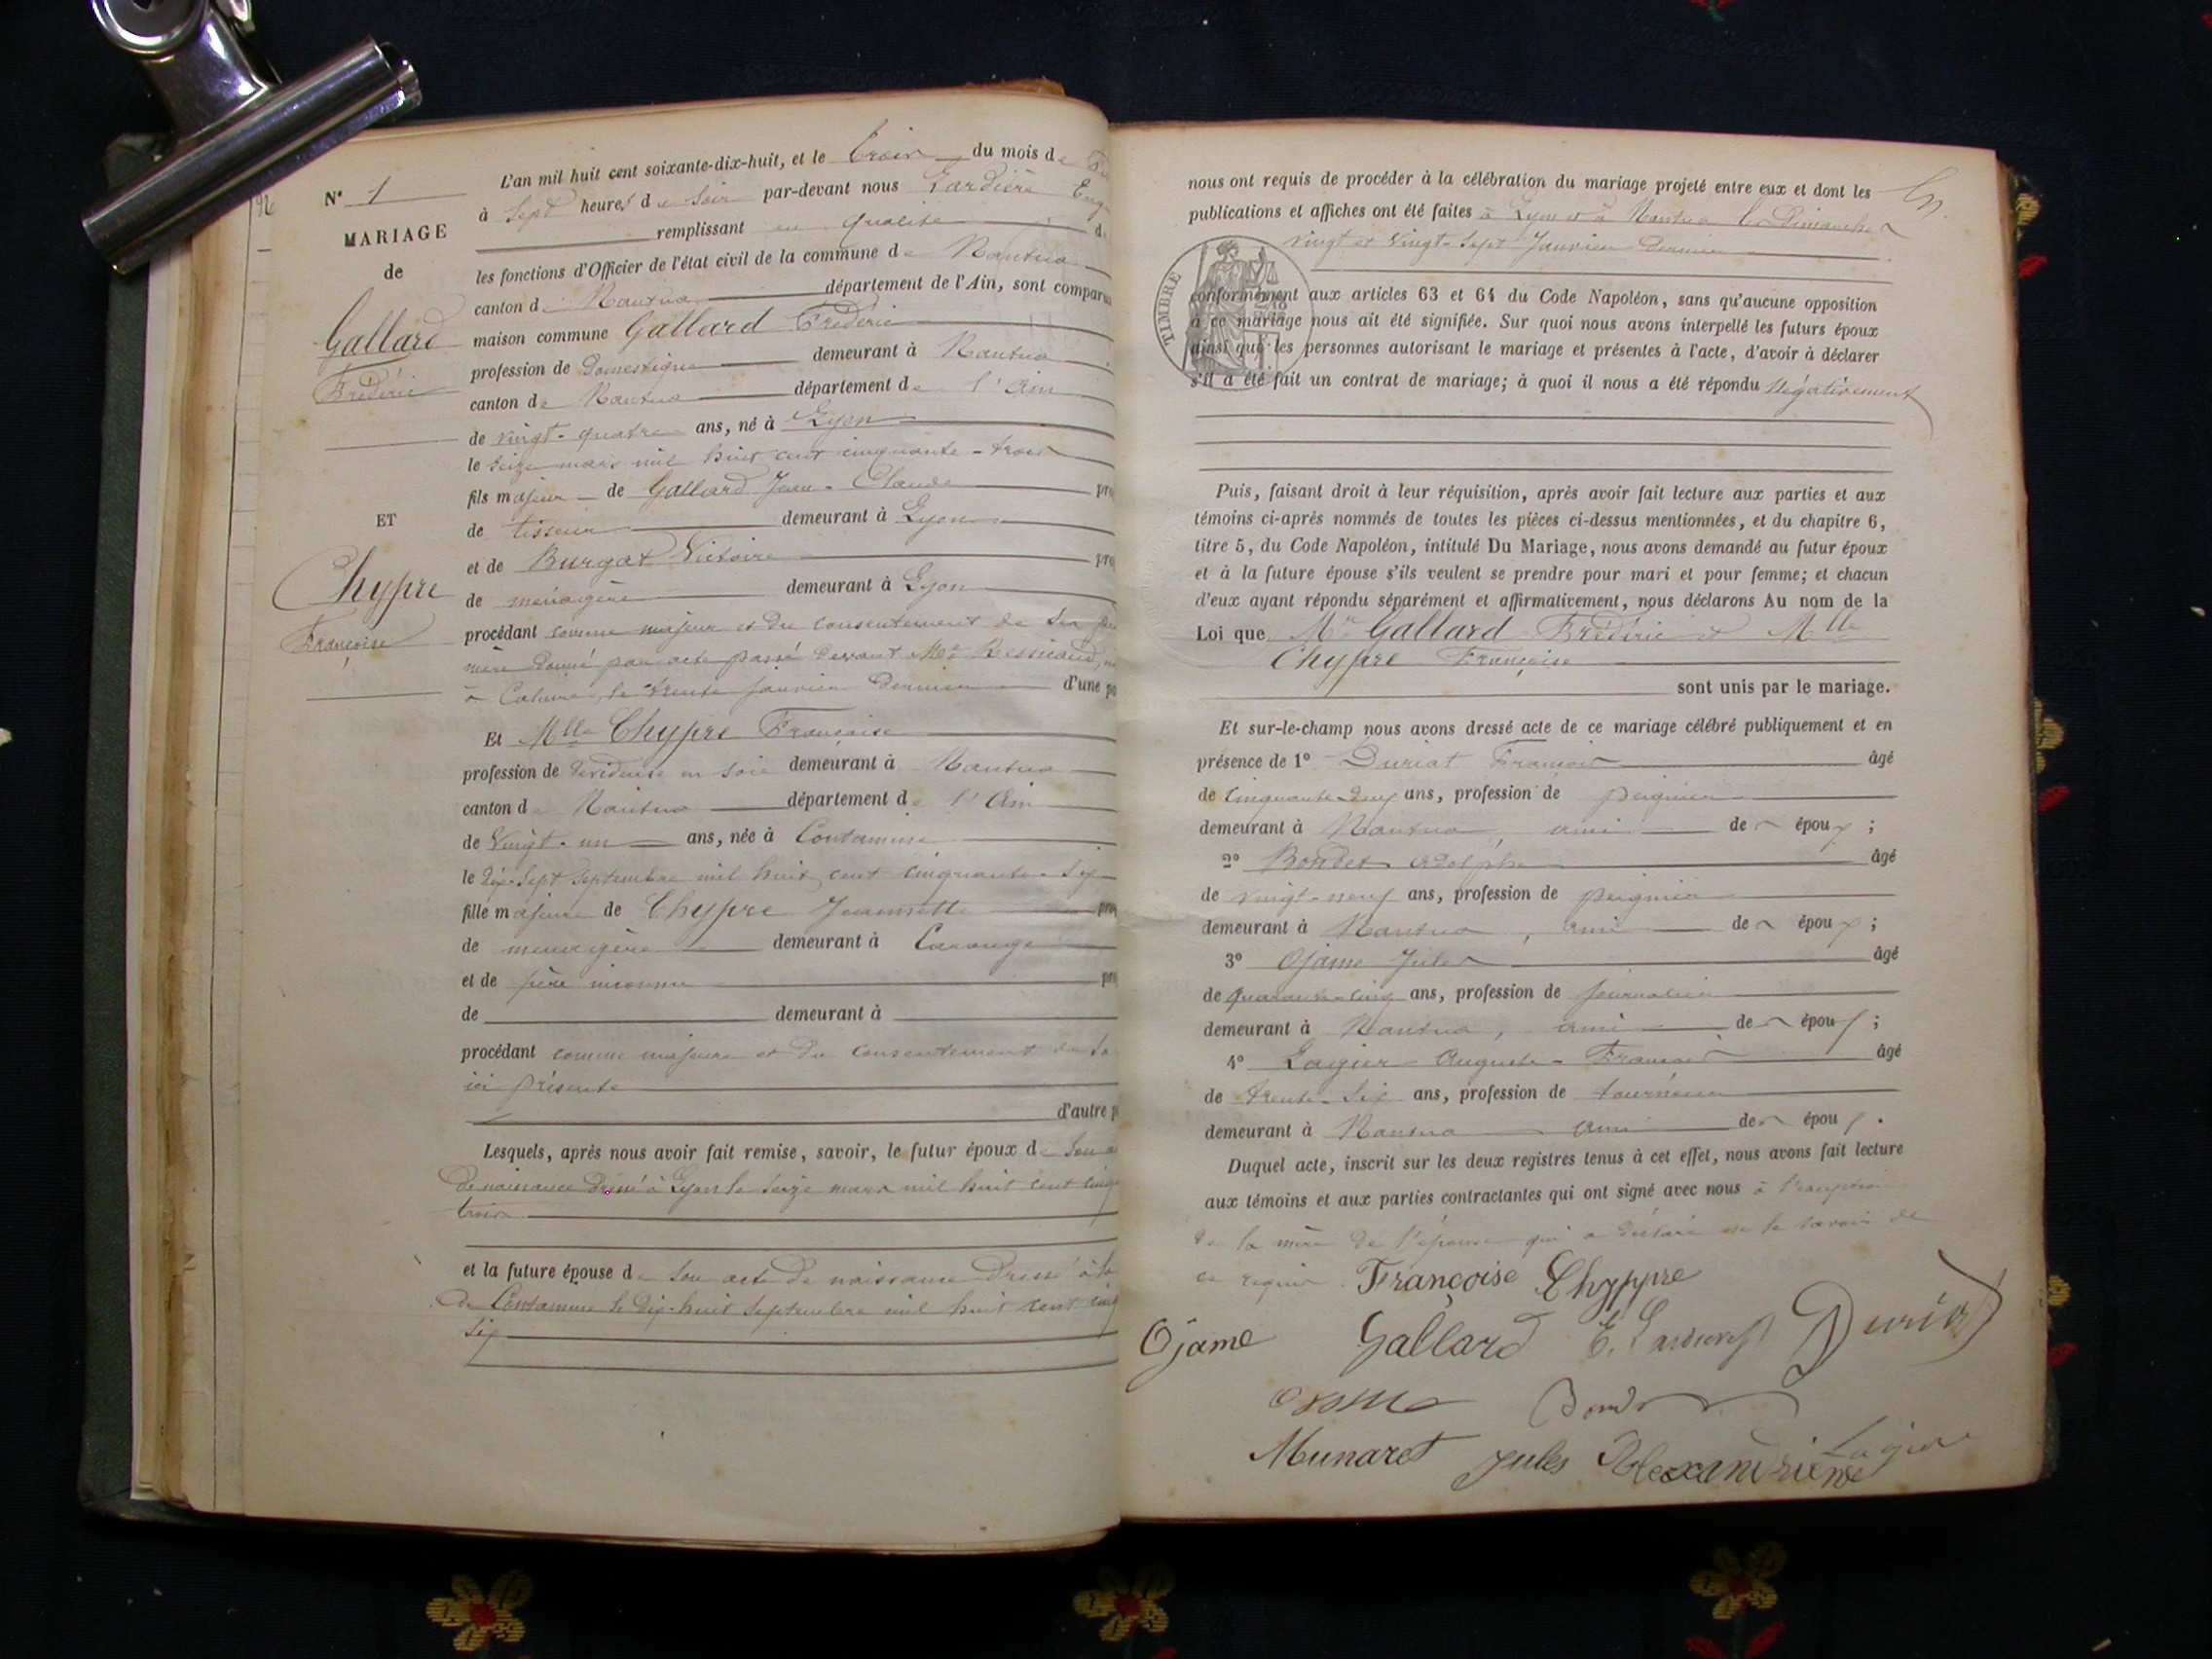 N° 1
MARIAGE
de
Gallard
Frédéric
ET
Chypre
Françoise
L'an mil huit cent soixante-dix-huit, et le trois du mois de
à sept heures du soir par-devant nous Lardière Eug
remplissant en qualité d
les fonctions d'Officier de l'état civil de la commune de Nantua
canton de Nantua département de l'Ain, sont comparu
maison commune Gallard Frédéric
profession de domestique demeurant à Nantua
canton de Nantua département de l'Ain
de vingt-quatre ans, né à Lyon
le seize mars mil huit cent cinquante-trois
fils majeur de Gallard Jean-Claude pro
de tisseur demeurant à Lyon
et de Burgat Victoire pro
de ménagère demeurant à Lyon
procédant comme majeur et du consentement de ses
mère donné par acte passé devant Me
à le trente Janvier dernier d'une pa
Et Mlle Chypre Françoise
profession de dévideuse en soie demeurant à Nantua
canton de Nantua département de l'Ain
de Vingt-un ans, née à Contamine
le dix-sept septembre mil huit cent cinquante-six
fille majeure de Chypre Jeannette pro
de ménagère demeurant à Carouge
et de père inconnu pro
de demeurant à
procédant comme majeure et du consentement de sa
ici présente
d'autre p
Lesquels, après nous avoir fait remise, savoir, le futur époux de son a
de naissance dressé à Lyon le seize mars mil huit cent cinqu
trois
et la future épouse de son acte de naissance dressé à la
de Contamine le dix-huit septembre mil huit cent cinq
six
nous ont requis de procéder à la célébration du mariage projeté entre eux et dont les
publications et affiches ont été faites à Lyon et à Nantua les Dimanches
vingt et vingt-sept Janvier dernier
TIMBRE
conformément aux articles 63 et 64 du Code Napoléon, sans qu'aucune opposition
à ce mariage nous ait été signifiée. Sur quoi nous avons interpellé les futurs époux
ainsi que les personnes autorisant le mariage et présentes à l'acte, d'avoir à déclarer
s'il a été fait un contrat de mariage; à quoi il nous a été répondu négativement
Puis, faisant droit à leur réquisition, après avoir fait lecture aux parties et aux
témoins ci-après nommés de toutes les pièces ci-dessus mentionnées, et du chapitre 6,
titre 5, du Code Napoléon, intitulé Du Mariage, nous avons demandé au futur époux
et à la future épouse s'ils veulent se prendre pour mari et pour femme; et chacun
d'eux ayant répondu séparément et affirmativement, nous déclarons Au nom de la
Loi que Mr Gallard Frédéric et Mlle
Chypre Françoise
sont unis par le mariage.
Et sur-le-champ nous avons dressé acte de ce mariage célébré publiquement et en
présence de 1° Duriat François âgé
de cinquante-deux ans, profession de peignier
demeurant à Nantua, ami des époux;
2° Bondet Adolphe âgé
de vingt-neuf ans, profession de peignier
demeurant à Nantua, ami des époux;
3° Ojame Jules âgé
de quarante-cinq ans, profession de journalier
demeurant à Nantua, ami des époux;
4° Lagier Auguste-François âgé
de trente-six ans, profession de tourneur
demeurant à Nantua ami des époux.
Duquel acte, inscrit sur les deux registres tenus à cet effet, nous avons fait lecture
aux témoins et aux parties contractantes qui ont signé avec nous à l'exception
de la mère de l'épouse qui a déclaré ne le savoir de
ce requis. Françoise Chyppre
Ojame Gallard E. Lardière Duriat
Munaret Jules Alexandrienne Lagier